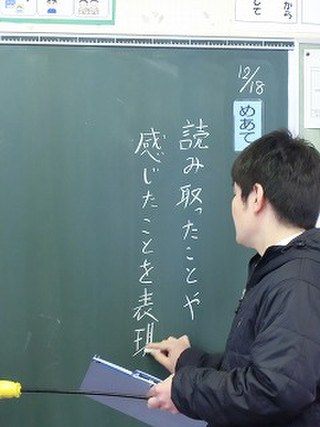 12/18
めあて
読み取ったことや
感じたことを表現
から
して